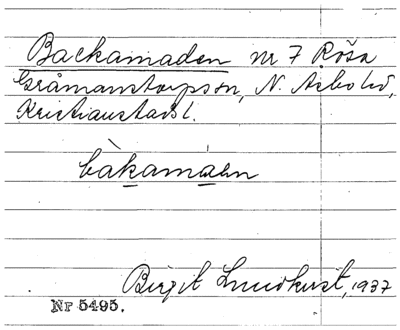 Backamaden nr 7 Röša
Gråmanstorpssn, N. Åsbo hd,
Kristianstads l.
bàkamàen
Birgit Lundkvist, 1937
Nr 5495.